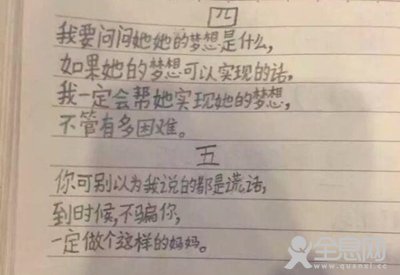 四
我要问问她她的梦想是什么，
如果她的梦想可以实现的话，
我一定会帮她实现她的梦想，
不管有多困难。
五
你可别以为我说的都是谎话，
到时候，不骗你，
一定做个这样的妈妈。
全息网
www.quanxi.cc